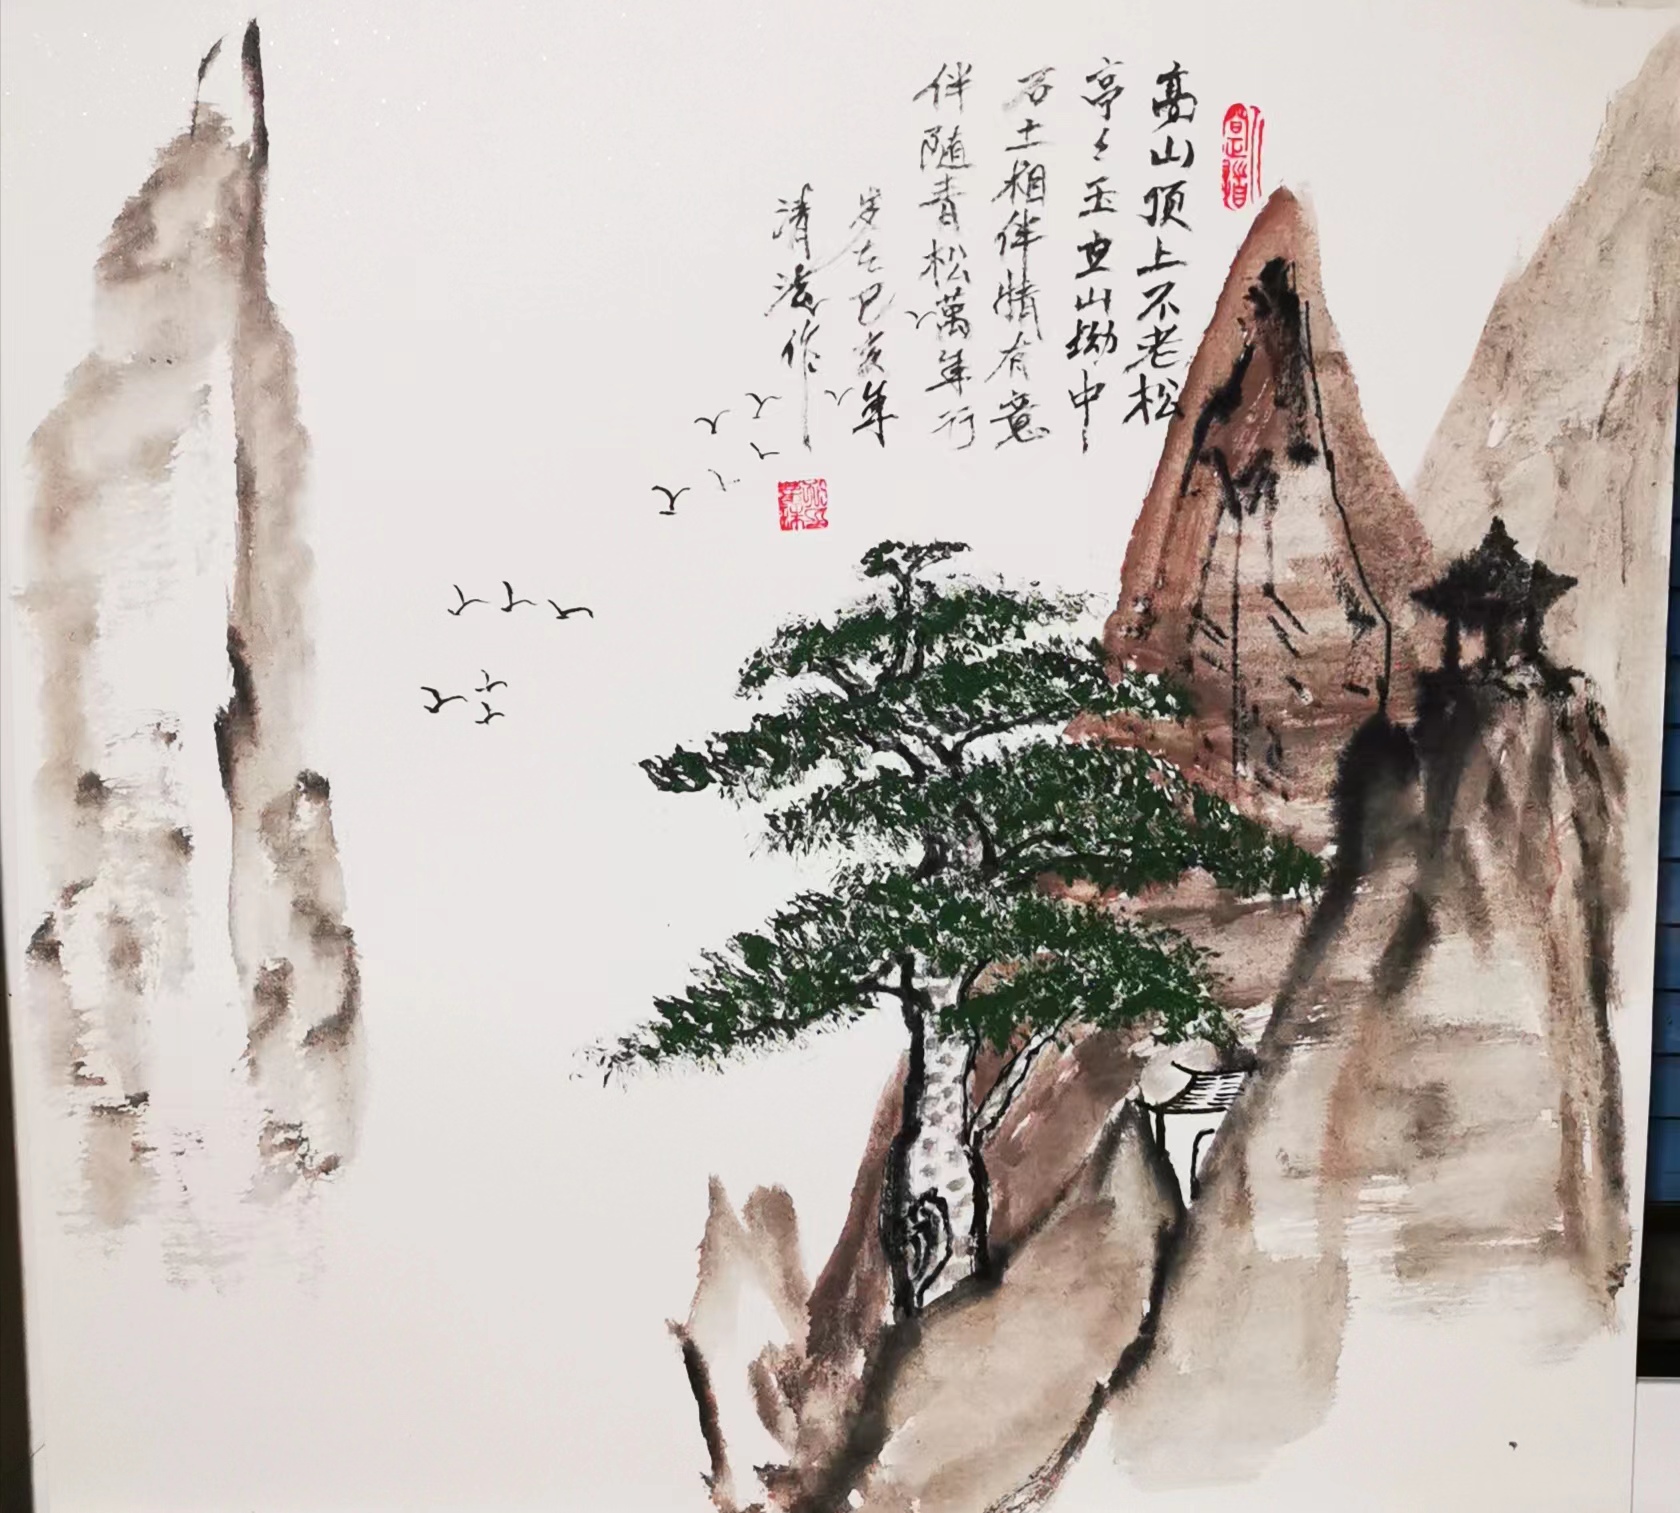 高山顶上不老松
亭々玉立山坳中
石土相伴情有意
伴随青松萬年行
岁在己亥年
清法作